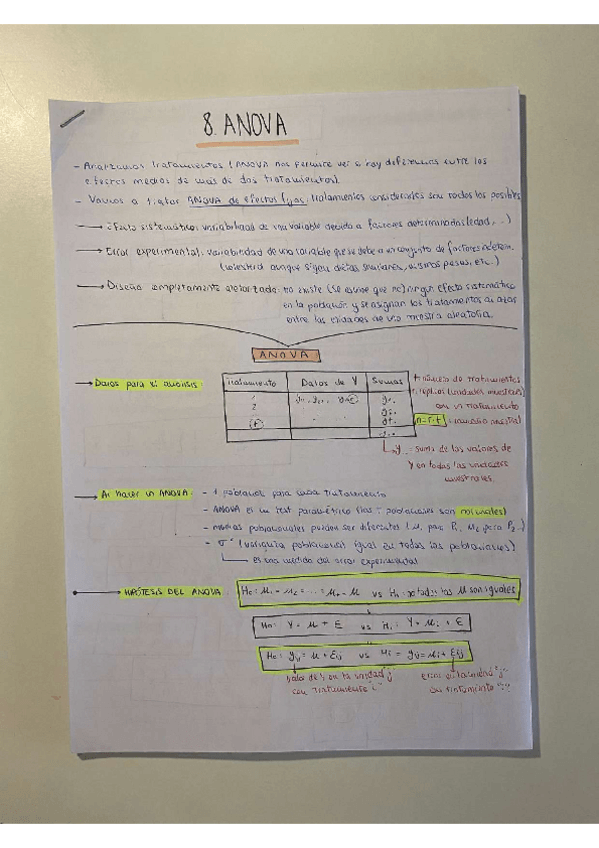 8. ANOVA
- Analizamos tratamientos (ANOVA nos permite ver si hay diferencias entre los
efectos medios de más de dos tratamientos).
- Vamos a tratar ANOVA de efectos fijos: tratamientos considerados son todos los posibles
Efecto sistemático: variabilidad de una variable debido a factores determinados (edad, ...)
Error experimental: variabilidad de una variable que se debe a un conjunto de factores
(colesterol aunque sigan dietas similares, mismos pesos, etc.)
Diseño completamente aleatorizado: no existe (se asume que no) ningún efecto sistemático
en la población y se asignan los tratamientos al azar
entre las unidades de una muestra aleatoria.
ANOVA
Datos para el análisis:
Tratamiento Datos de Y Sumas
1
2
t
y..
t: número de tratamientos
r: réplicas (unidades muestrales)
con un tratamiento
n = r · t : tamaño muestral
y.. = suma de los valores de
Y en todas las unidades
muestrales.
Al hacer un ANOVA: - 1 población para cada tratamiento
- ANOVA es un test paramétrico (las t poblaciones son normales)
- medias poblacionales pueden ser diferentes (μ₁ para P₁, μ₂ para P₂...)
- σ² (varianza poblacional igual en todas las poblaciones)
es una medida del error experimental
HIPÓTESIS DEL ANOVA: H₀ = μ₁ = μ₂ = ... = μₜ = μ vs H₁ = no todas las μ son iguales
H₀: Y = μ + ε vs H₁: Y = μᵢ + ε
H₀: yᵢⱼ = μ + εᵢⱼ vs H₁ = yᵢⱼ = μᵢ + εᵢⱼ
valor de Y en la unidad "j"
con tratamiento "i"
error en la unidad "j"
con tratamiento "i"